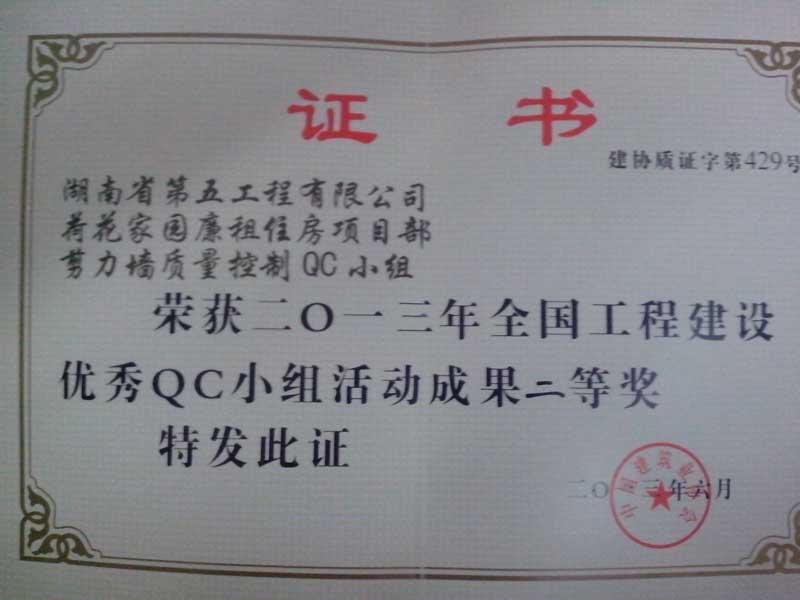 证 书
建协质证字第429号
湖南省第五工程有限公司
荷花家园廉租住房项目部
剪力墙质量控制QC小组
荣获二〇一三年全国工程建设
优秀QC小组活动成果二等奖
特发此证
二〇一三年六月
中国建筑业协会